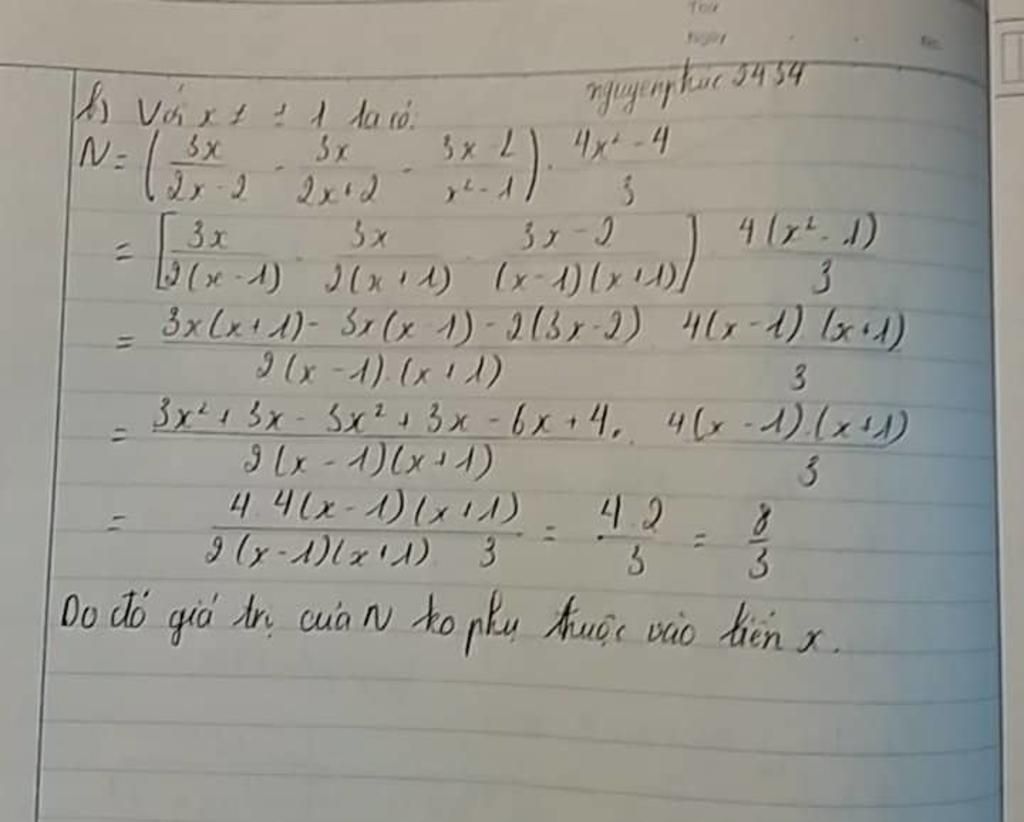 Thứ
Ngày . . No.
nguyenphuc 5454
b) Với x ≠ ± 1 ta có.
N = (3x/(2x - 2) - 3x/(2x + 2) - (3x - 2)/(x² - 1)) . (4x² - 4)/3
= [3x/(2(x - 1)) - 3x/(2(x + 1)) - (3x - 2)/((x - 1)(x + 1))] 4(x² - 1)/3
= (3x(x + 1) - 3x(x - 1) - 2(3x - 2))/(2(x - 1).(x + 1)) 4(x - 1).(x + 1)/3
= (3x² + 3x - 3x² + 3x - 6x + 4)/(2(x - 1)(x + 1)) . 4(x - 1).(x + 1)/3
= 4.4(x - 1)(x + 1)/(2(x - 1)(x + 1).3) = 4.2/3 = 8/3
Do đó giá trị của N ko phụ thuộc vào biến x.